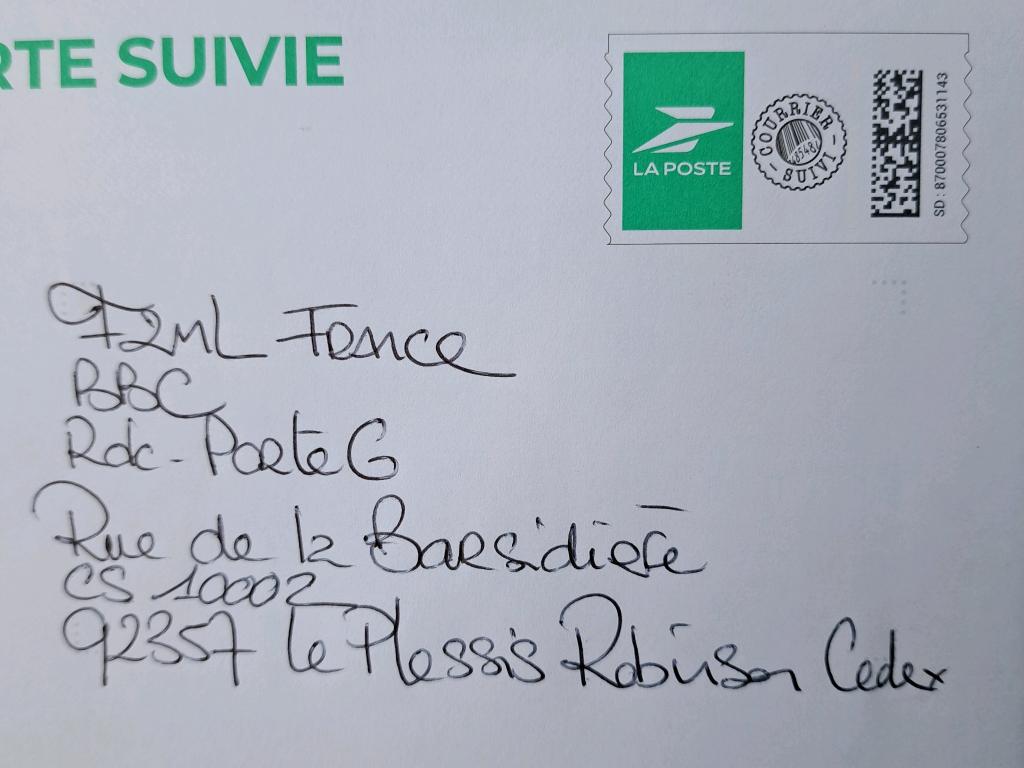 RTE SUIVIE
LA POSTE
COURRIER
SUIVI
SD : 87000780653 1143
F2ML France
BBC
Rdc - Porte G
Rue de la
CS 10002
92357 le Plessis Robinson Cedex